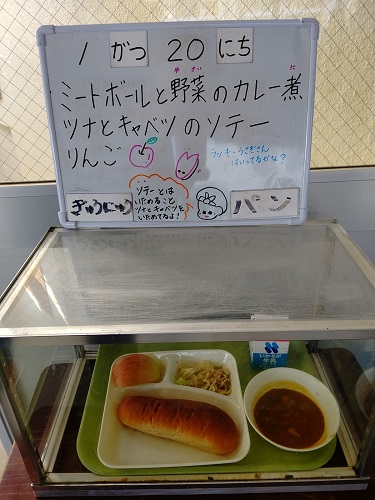 1 がつ 20 にち
ミートボールと野菜のカレー煮
やさい
に
ツナとキャベツのソテー
りんご
ラッキーうさぎさん
はいってるかな?
ソテーとは
いためること
ツナとキャベツを
いためてるよ!
ぎゅうにゅう
パン
牛乳